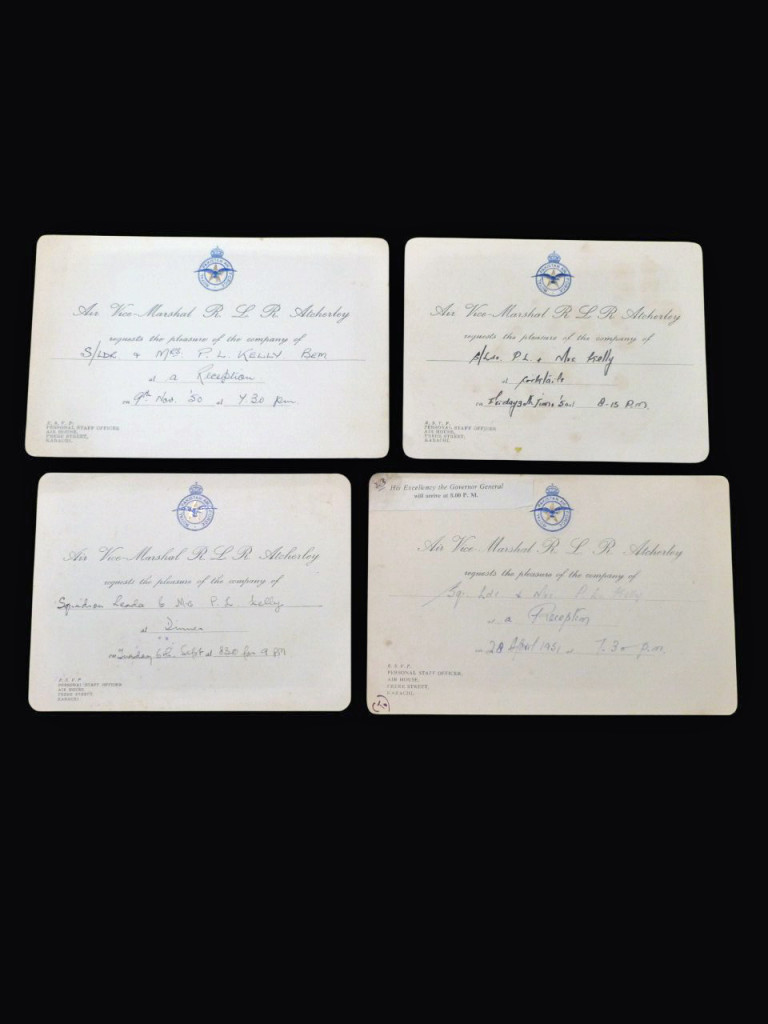 Air Vice-Marshal R. L. R. Atcherley
requests the pleasure of the company of
S/LDR & MRS. P. L. KELLY BEM
at a Reception
on 9th Nov. '50 at 7.30 pm.
R.S.V.P.
PERSONAL STAFF OFFICER,
AIR HOUSE,
KARACHI.
Air Vice-Marshal R. L. R. Atcherley
requests the pleasure of the company of
S/Ldr. P.L. & Mrs Kelly
at Cocktails
on Friday 8-15 P.M.
R.S.V.P.
PERSONAL STAFF OFFICER,
AIR HOUSE,
KARACHI.
Air Vice-Marshal R. L. R. Atcherley
requests the pleasure of the company of
Squadron Leader & Mrs P L Kelly
at Dinner
on Sept at 8.30 for 9 PM
R.S.V.P.
PERSONAL STAFF OFFICER,
AIR HOUSE,
KARACHI.
His Excellency the Governor General
will arrive at 8.00 P. M.
Air Vice-Marshal R. L. R. Atcherley
requests the pleasure of the company of
Sq. Ldr & Mrs P. L. Kelly
at a Reception
on 28 April 1951 at 7.30 p.m.
R.S.V.P.
PERSONAL STAFF OFFICER,
AIR HOUSE,
KARACHI.